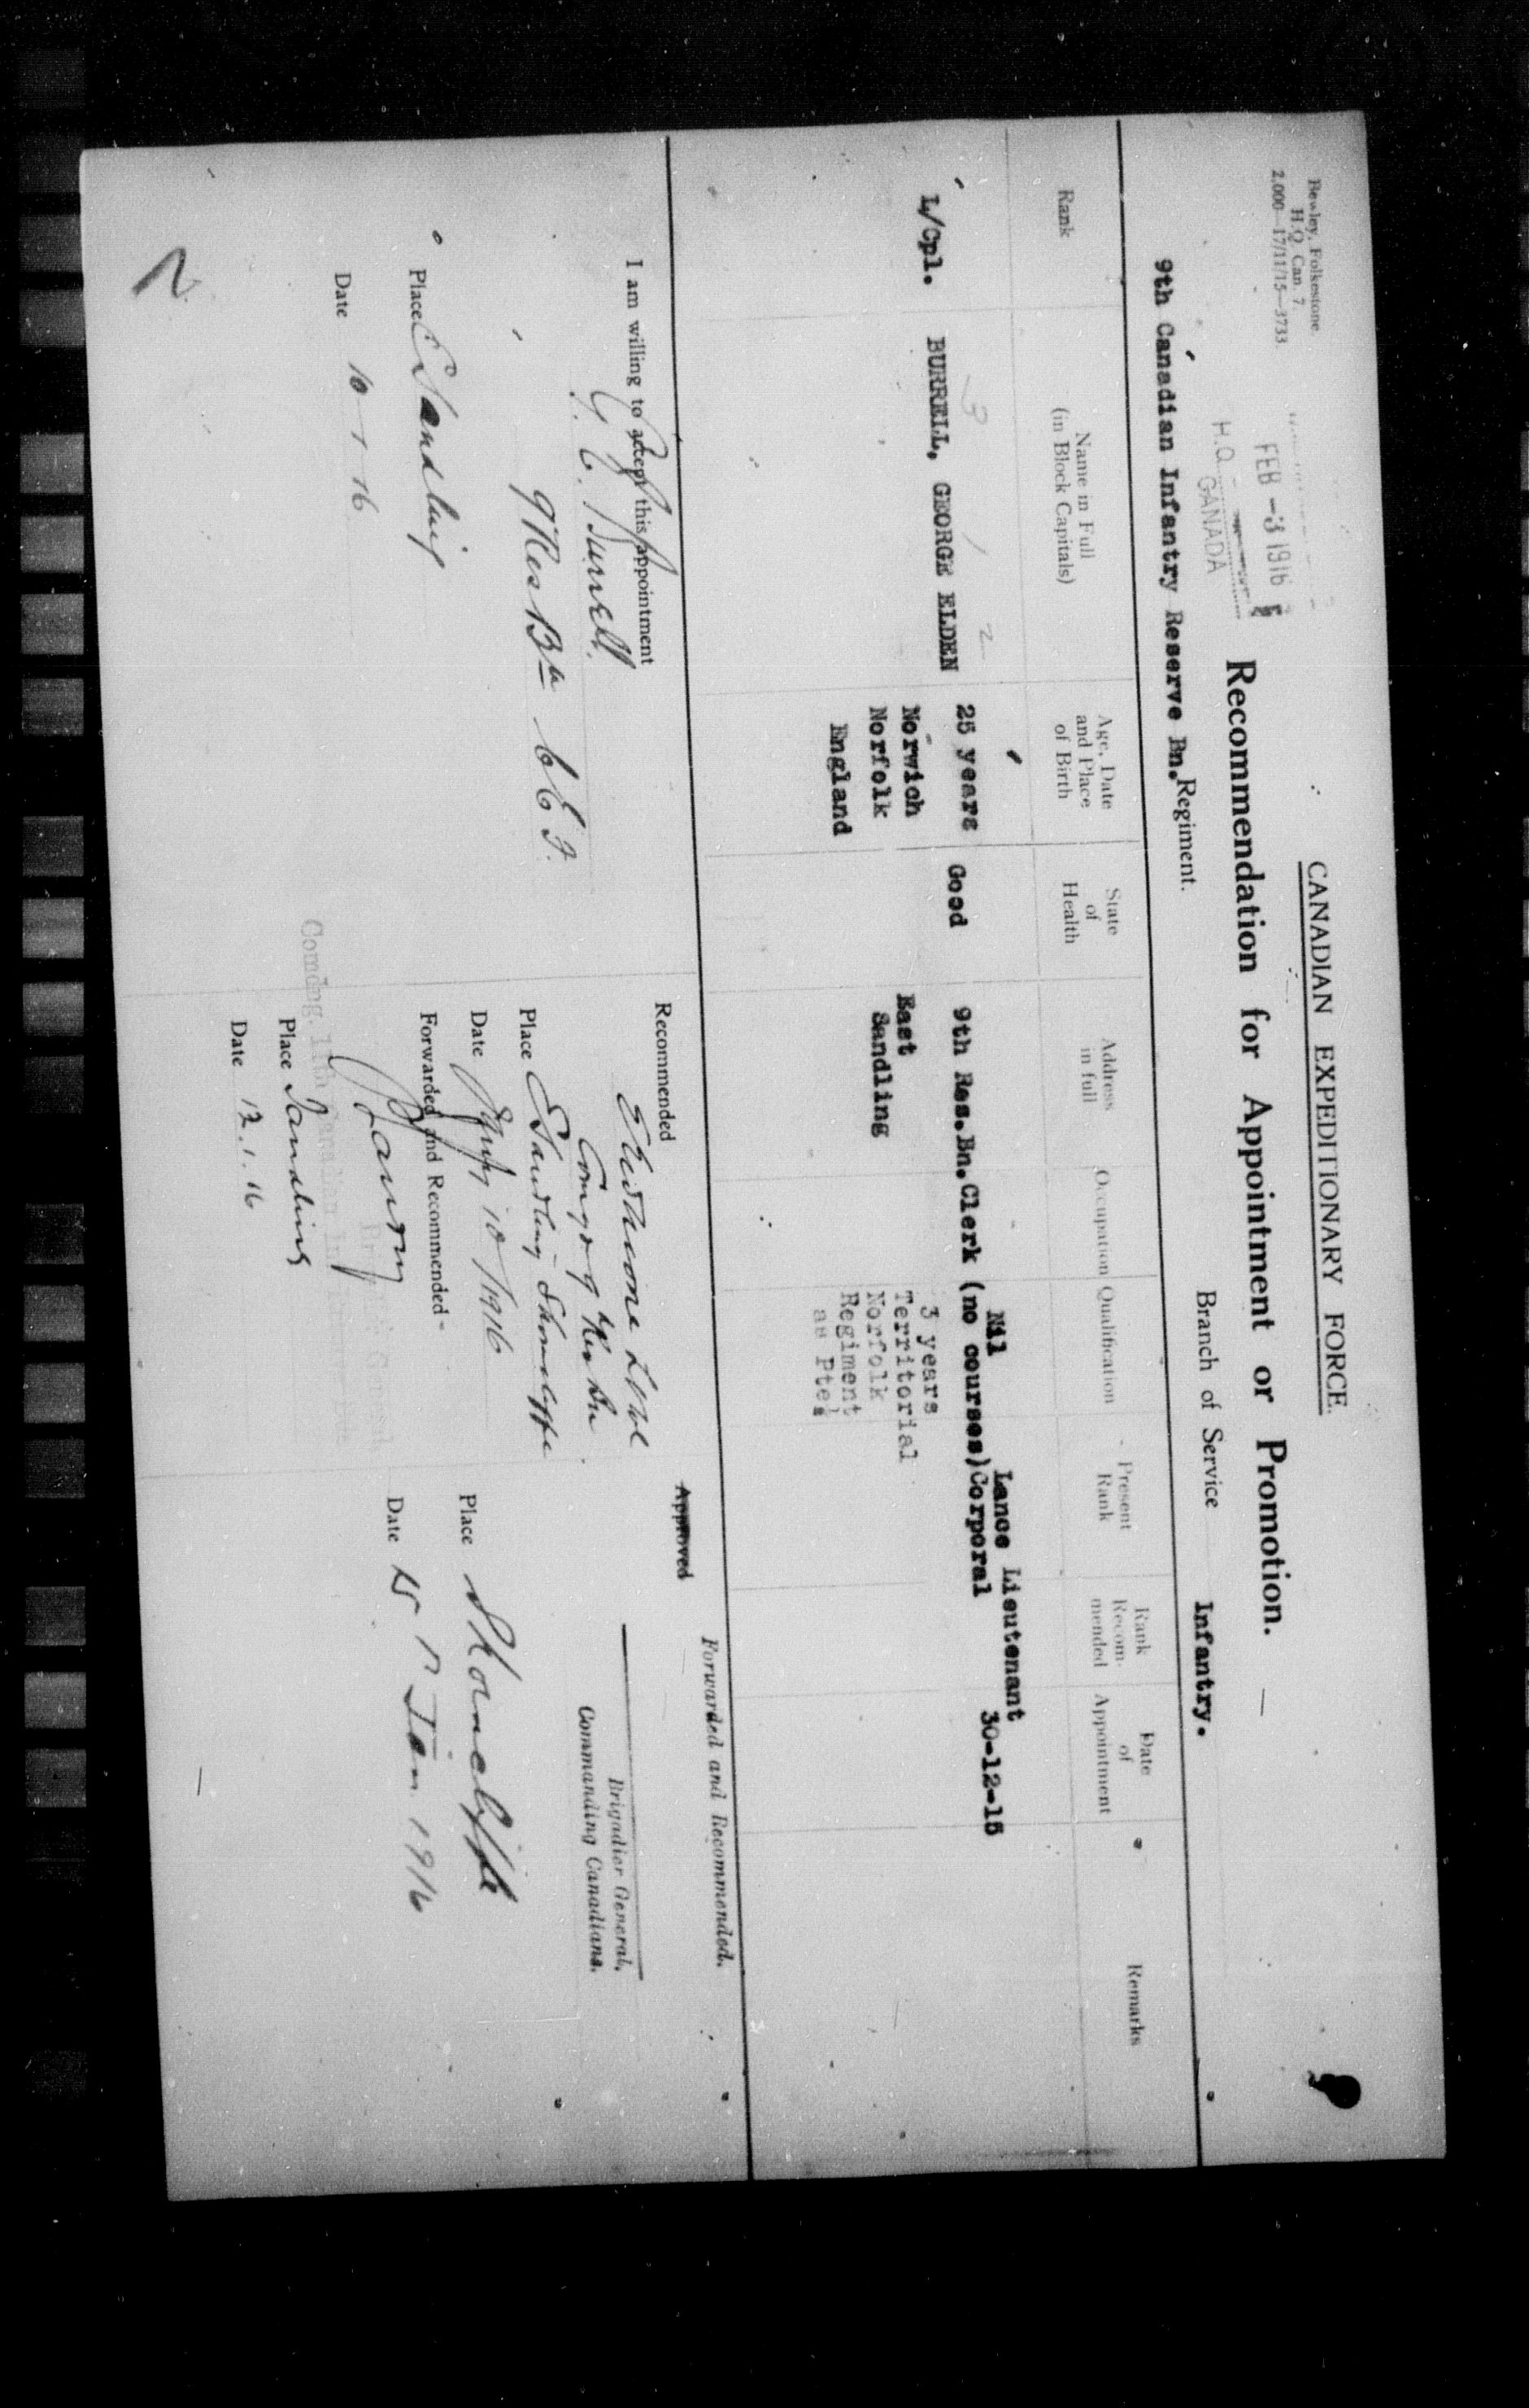 Bewley, Folkestone.
H.Q. Can. 7.
2,000—17/11/15—3733.
FEB -3 1916
H.Q. CANADA
CANADIAN EXPEDITIONARY FORCE.
Recommendation for Appointment or Promotion.
9th Canadian Infantry Reserve Bn. Regiment.
Branch of Service Infantry.
Rank
Name in Full
(in Block Capitals)
Age, Date
and Place
of Birth
State
of
Health
Address
in full
Occupation
Qualification
Present
Rank
Rank
Recom-
mended
Date
of
Appointment
Remarks
L/Cpl.
BURRELL, GEORGE ELDEN
25 years
Norwich
Norfolk
England
Good
9th Res. Bn.
East
Sandling
Clerk
Nil
(no courses)
3 years
Territorial
Norfolk
Regiment
as Pte.
Lance
Corporal
Lieutenant
30-12-15
I am willing to accept this appointment
G. E. Burrell.
9 Res Bn C E F.
Place E Sandling
Date 10 - 1 - 16
Recommended
Comdg 9 Res Bn
Place E Sandling Shorncliffe
Date Jany 10/1916
Forwarded and Recommended -
Comdng. 11th Canadian
Place Sandling
Date 12.1.16
Approved
Forwarded and Recommended.
Brigadier General,
Commanding Canadians.
Place Shorncliffe
Date Jan 1916